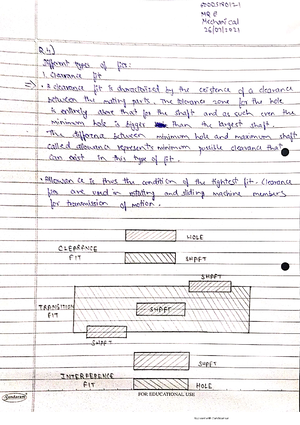 MQP
Mechanical
26/07/2021
Q.4)
Different types of fits:
1. Clearance fit
⇒ • A clearance fit is characterized by the existence of a clearance
between the mating parts. The tolerance zone for the hole
is entirely above that for the shaft and as such even the
minimum hole is bigger than the largest shaft.
The difference between minimum hole and maximum shaft
called allowance represents minimum possible clearance that
can exist in this type of fit.
• Allowance is thus the condition of the tightest fit. Clearance
fits are used in rotating and sliding machine members
for transmission of motion.
HOLE
CLEARENCE
FIT
SHAFT
SHAFT
TRANSITION
FIT
SHAFT
SHAFT
SHAFT
INTERFERENCE
FIT
HOLE
Sundaram
FOR EDUCATIONAL USE
Scanned with CamScanner